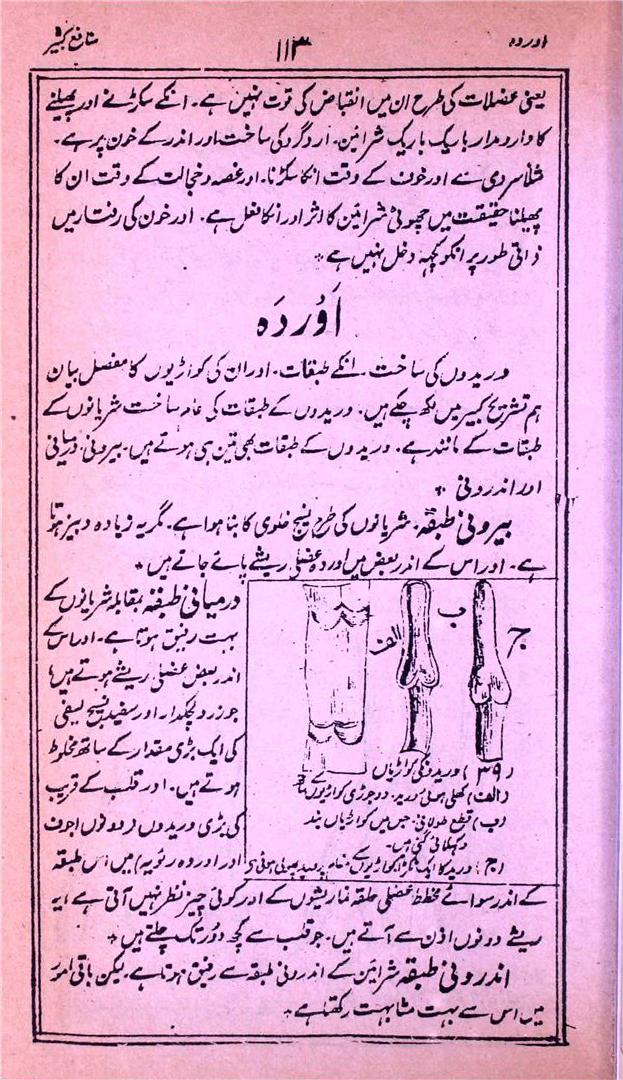 اوردہ
۱۱۳
منافع کبیر
یعنی عضلات کی طرح ان میں انقباض کی قوت نہیں ہے۔ انکے سکڑنے اور پھیلنے
کا دارومدار باریک باریک شرائین۔ اردگرد کی ساخت اور اندر کے خون پر ہے۔
مثلاً سردی سے اور خون کے وقت انکا سکڑنا۔ اور غصہ و خجالت کے وقت ان کا
پھیلنا حقیقت میں چھوٹی شرائین کا اثر اور انکا فعل ہے۔ اور خون کی رفتار میں
ذاتی طور پر انکو کچھ دخل نہیں ہے۔
اَوْرِدَہ
وریدوں کی ساخت۔ انکے طبقات۔ اور ان کی کواڑیوں کا مفصل بیان
ہم تشریح کبیر میں لکھ چکے ہیں۔ وریدوں کے طبقات کی عام ساخت شریانوں کے
طبقات کے مانند ہے۔ وریدوں کے طبقات بھی تین ہی ہوتے ہیں۔ بیرونی۔ درمیانی
اور اندرونی۔
بیرونی طبقہ۔ شریانوں کی طرح نسیج خلوی کا بنا ہوا ہے۔ مگر یہ زیادہ دبیز ہوتا
ہے۔ اور اس کے اندر بعض میں اوردہ عضلی ریشے پائے جاتے ہیں۔
درمیانی طبقہ بمقابلہ شریانوں کے
بہت رقیق ہوتا ہے۔ اور اس کے
اندر بعض عضلی ریشے ہوتے ہیں
جو زرد لچکدار اور سفید نسیج لیفی
کی ایک بڑی مقدار کے ساتھ مخلوط
ہوتے ہیں۔ اور قلب کے قریب
کی بڑی وریدوں (دونوں اجوف
اور اوردہ رئویہ) میں اس طبقہ
الف
ب
ج
(۳۹) وریدونکی کواڑیاں
(الف) کھلی ہوئی ورید۔ دو جوڑی کواڑیوں کے ساتھ
(ب) قطع طولانی۔ جس میں کواڑیاں بند
دکھلائی گئی ہیں۔
(ج) ورید کا ایک ٹکڑا جو کواڑیوں کے مقام پر پھولی ہوئی ہے
کے اندر سوائے مخطط عضلی حلقہ نما ریشوں کے اور کوئی چیز نظر نہیں آتی ہے۔ یہ
ریشے دونوں اذن سے آتے ہیں۔ جو قلب سے کچھ دور تک چلتے ہیں۔
اندرونی طبقہ شرائین کے اندرونی طبقہ سے رقیق ہوتا ہے۔ لیکن باقی امور
میں اس سے بہت مشابہت رکھتا ہے۔